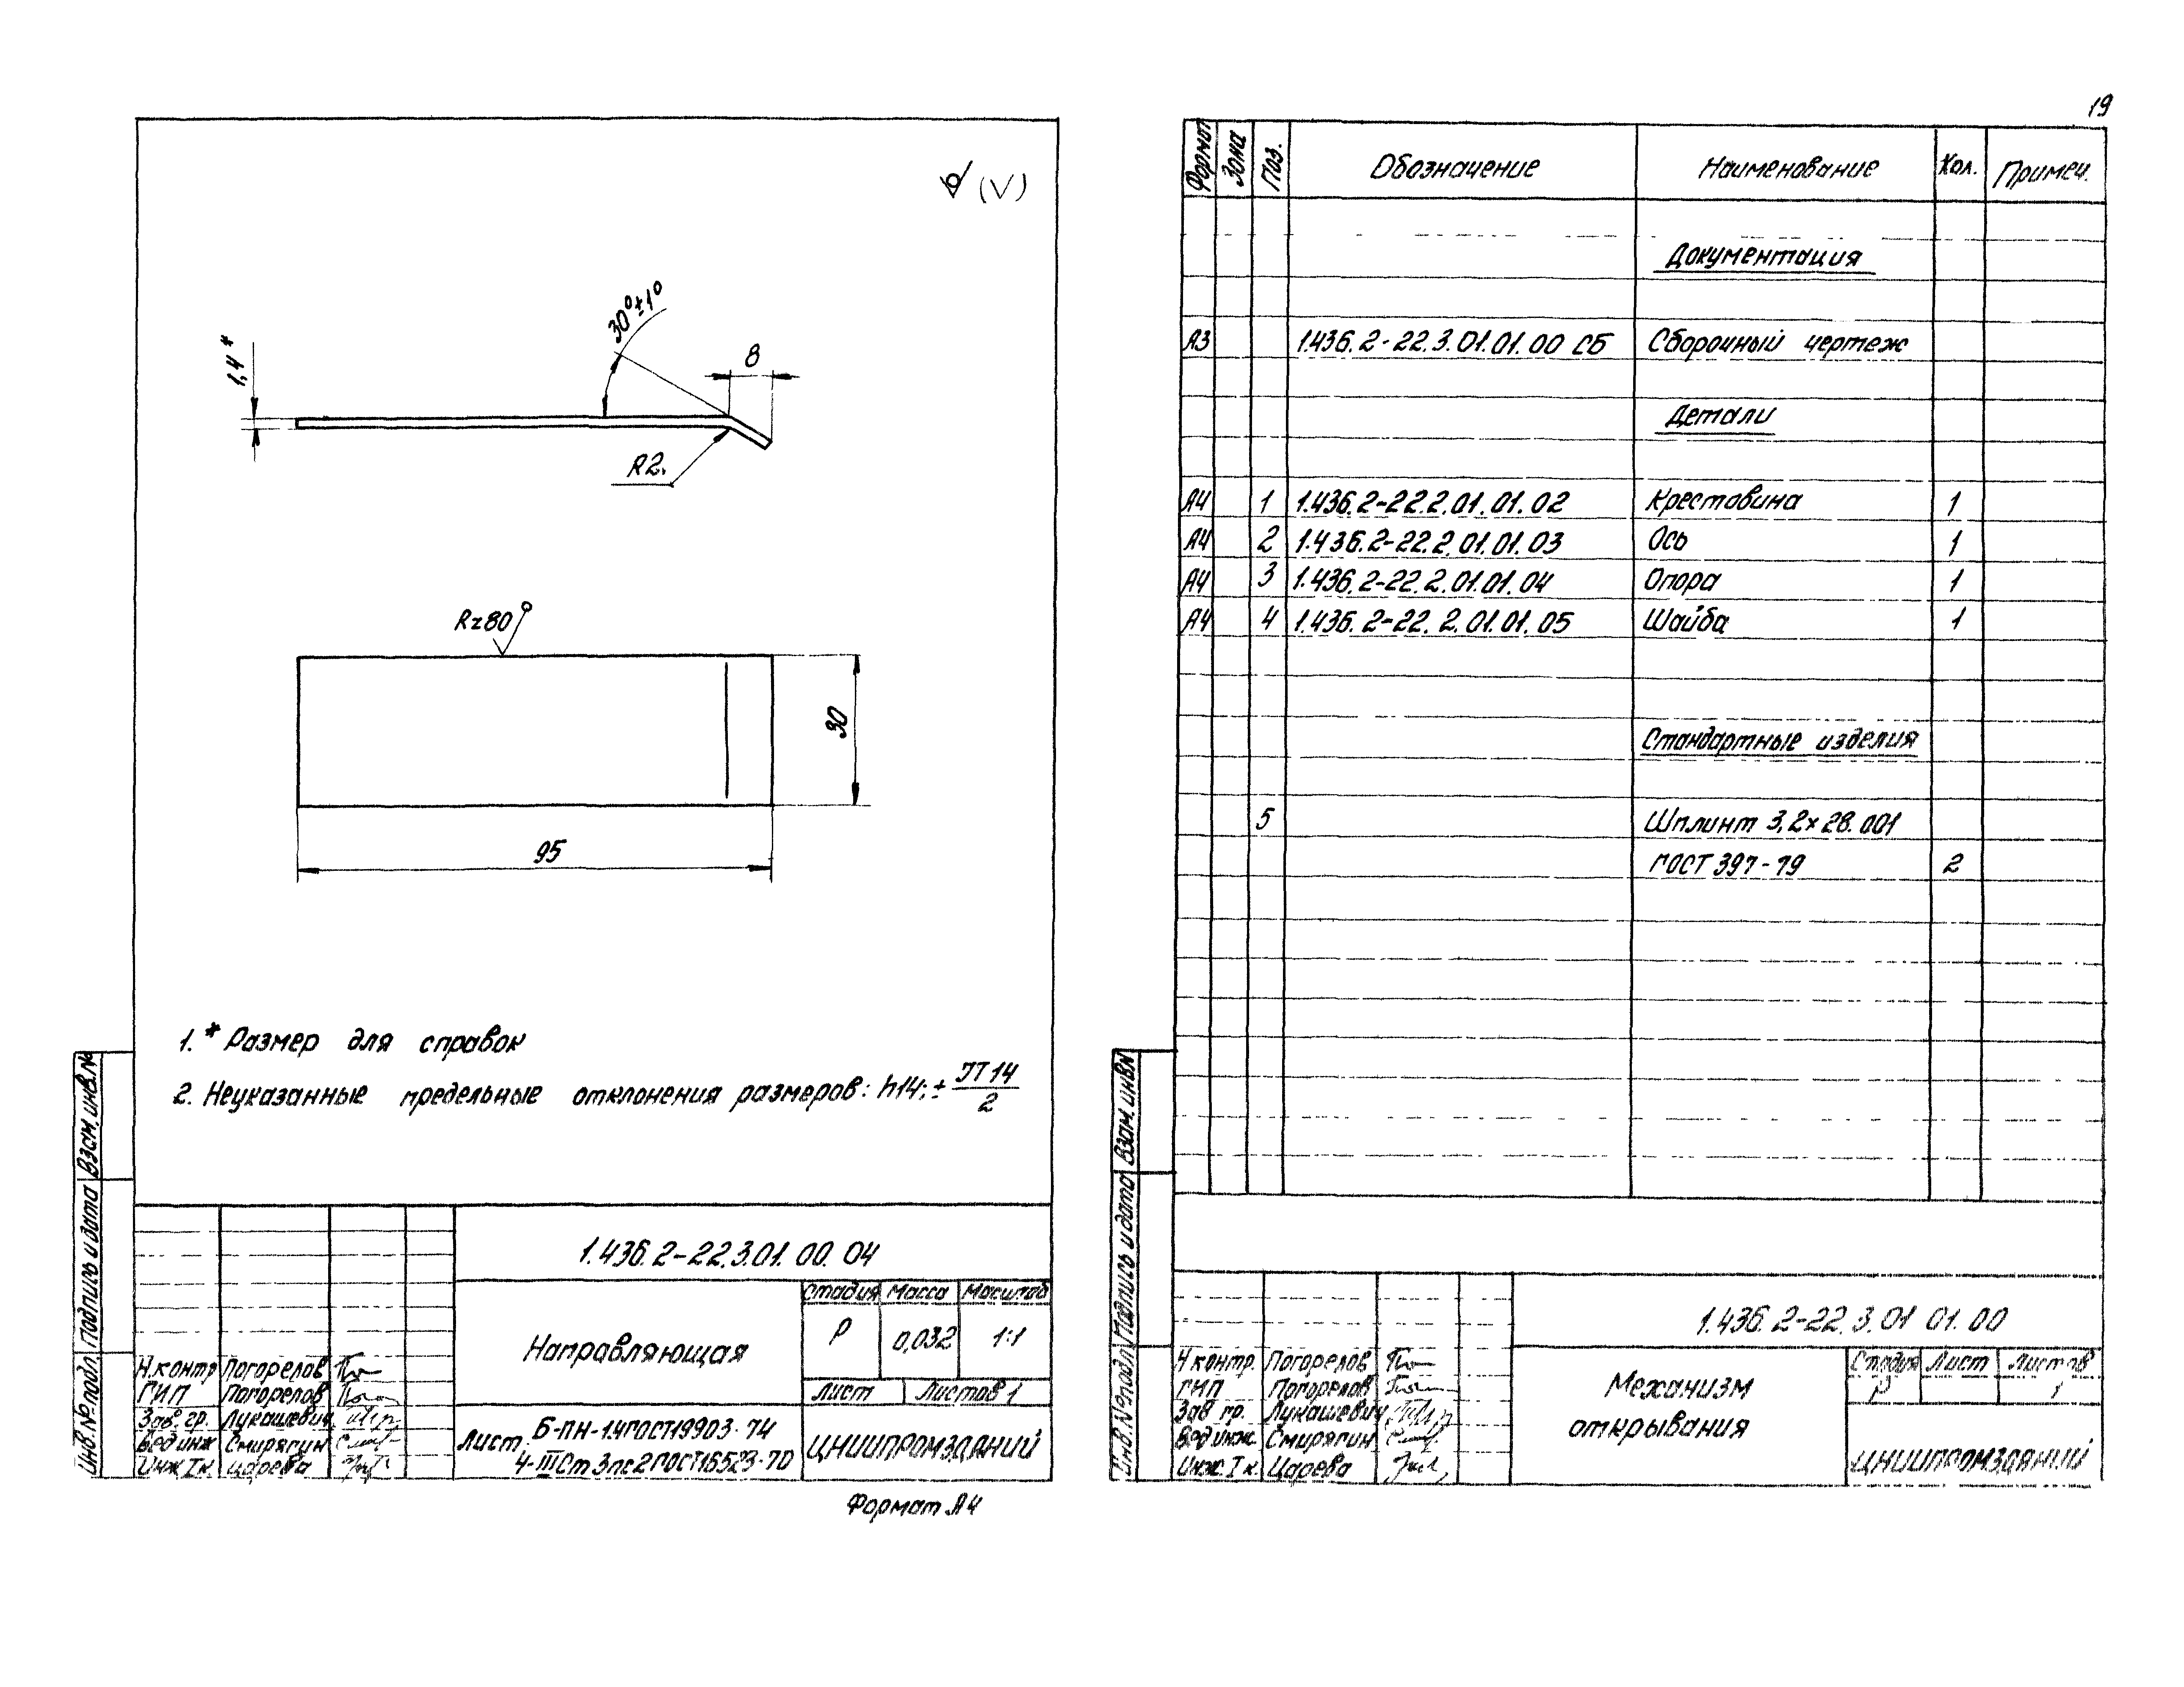 19
(√)
30°±1°
8
1,4*
R2.
Rz80
30
95
1.* Размер для справок
2. Неуказанные предельные отклонения размеров: h14; ± IT14
2
Взам. инв.№
Подпись и дата
Инв.№ подл.
1.436.2-22.3.01.00.04
Стадия Масса Масштаб
Направляющая
Р 0,032 1:1
Лист Листов 1
Н.контр Погорелов
ГИП Погорелов
Зав. гр. Лукашевич
Вед инж Смирягин
Инж I к. Царева
Лист Б-ПН-1.4 ГОСТ 19903-74
4-III Ст 3пс2 ГОСТ 16523-70
ЦНИИПРОМЗДАНИЙ
Формат А4
Формат Зона Поз. Обозначение Наименование Кол. Примеч.
Документация
А3 1.436.2-22.3.01.01.00 СБ Сборочный чертеж
Детали
А4 1 1.436.2-22.2.01.01.02 Крестовина 1
А4 2 1.436.2-22.2.01.01.03 Ось 1
А4 3 1.436.2-22.2.01.01.04 Опора 1
А4 4 1.436.2-22.2.01.01.05 Шайба 1
Стандартные изделия
5 Шплинт 3,2×28.001
ГОСТ 397-79 2
Взам. инв№
Подпись и дата
Инв.№ подл
1.436.2-22.3.01 01.00
Н контр. Погорелов
ГИП Погорелов
Зав гр. Лукашевич
Вед инж. Смирягин
Инж. I к. Царева
Механизм
открывания
Стадия Лист Листов
Р 1
ЦНИИПРОМЗДАНИЙ